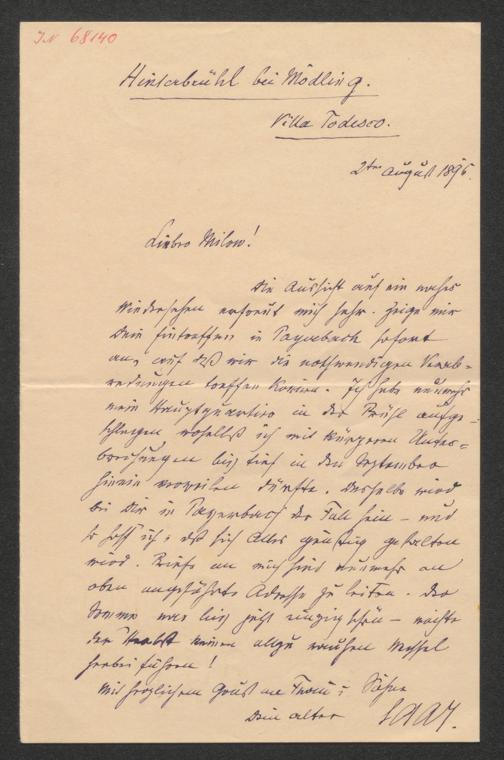 IN 68140
Hinterbrühl bei Mödling.
Villa Todesco.
2ten August 1896.
Lieber Milow!
Die Aussicht auf ein nahes
Wiedersehen erfreut mich sehr. Zeige mir
Dein Eintreffen in Payerbach sofort
an, auf daß wir die nothwendigen Verab=
redungen treffen können. Ich habe nunmehr
mein Hauptquartier in der Brühl aufge=
schlagen woselbst ich mit kürzeren Unter=
brechungen bis tief in den September
hinein verweilen dürfte. Dasselbe wird
bei Dir in Payerbach der Fall sein – und
so hoff' ich, daß sich Alles günstig gestalten
wird. Briefe an mich sind nunmehr an
oben angeführte Adresse zu leiten. Der
Sommer war bis jetzt einzig schön – möchte
der Herbst keinen allzu rauhen Wechsel
herbei führen!
Mit herzlichem Gruß an Frau u. Söhne
Dein alter SAAR.